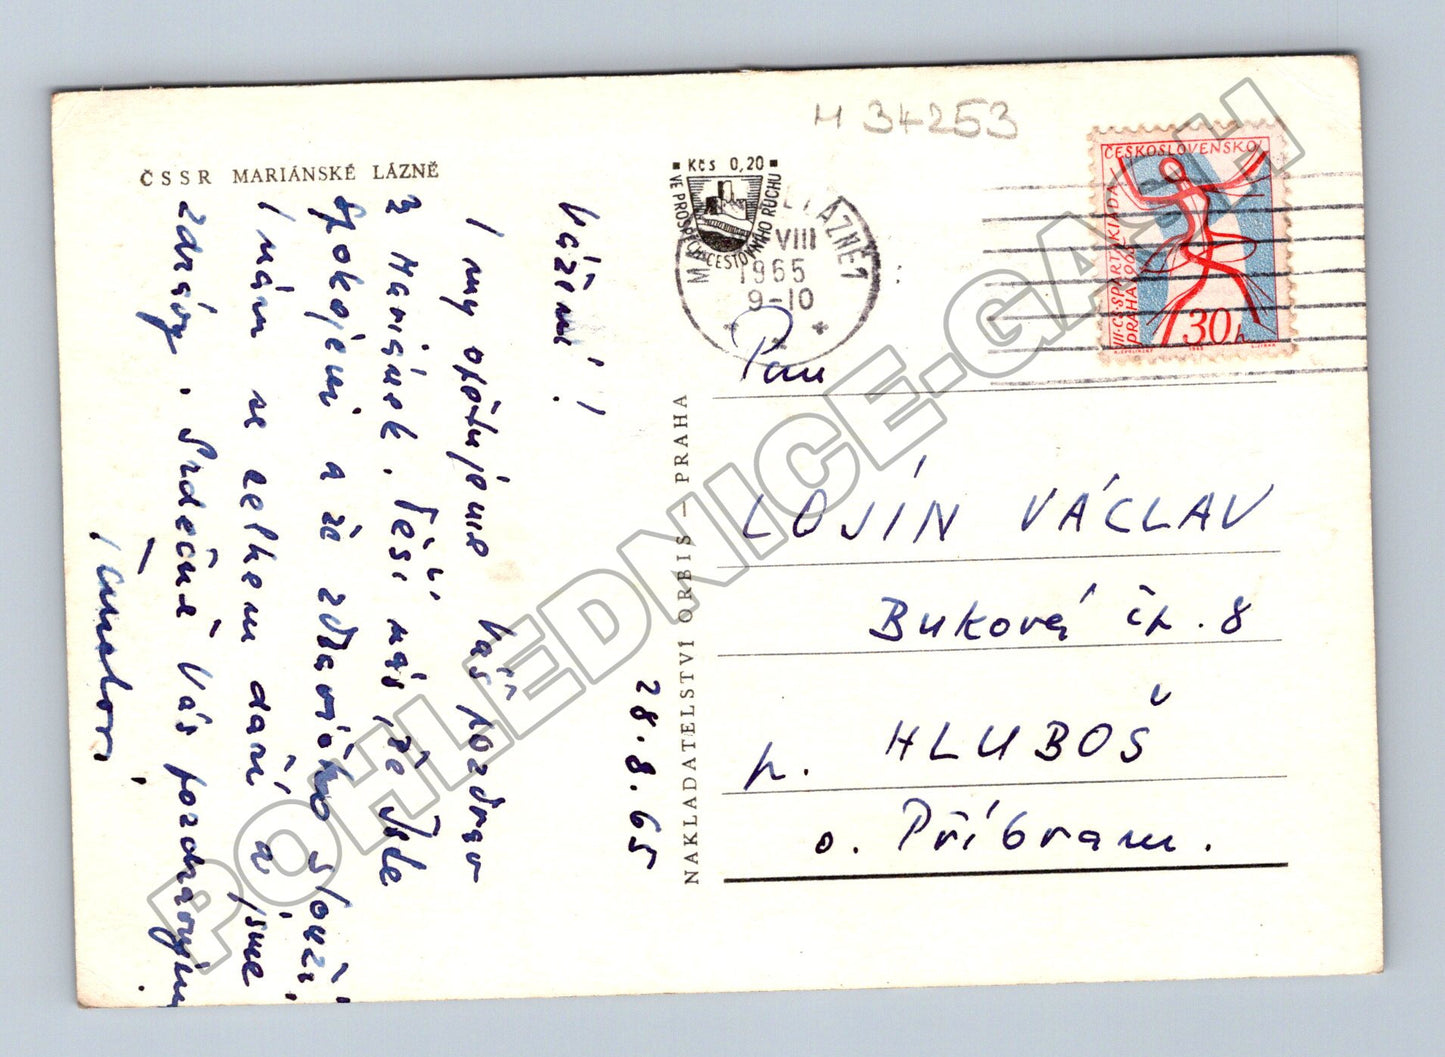 H 34253
ČSSR MARIÁNSKÉ LÁZNĚ
28.8.65
Vážení!
I my opětujeme Váš pozdrav
z Mariánek. Těší nás, že jste
spokojeni a že zdravíčko slouží
I nám se celkem daří a jsme
zdrávy. Srdečně Vás pozdravují
NAKLADATELSTVÍ ORBIS – PRAHA
Kčs 0,20
VE PROSPĚCH CESTOVNÍHO RUCHU
LÁZNĚ 1
VIII
1965
9-10
ČESKOSLOVENSKO
III. CS. SPARTAKIÁDA
PRAHA 1965
30h
Pan
LOJÍN VÁCLAV
Buková čp. 8
p. HLUBOŠ
o. Příbram.
POHLEDNICE-GASH